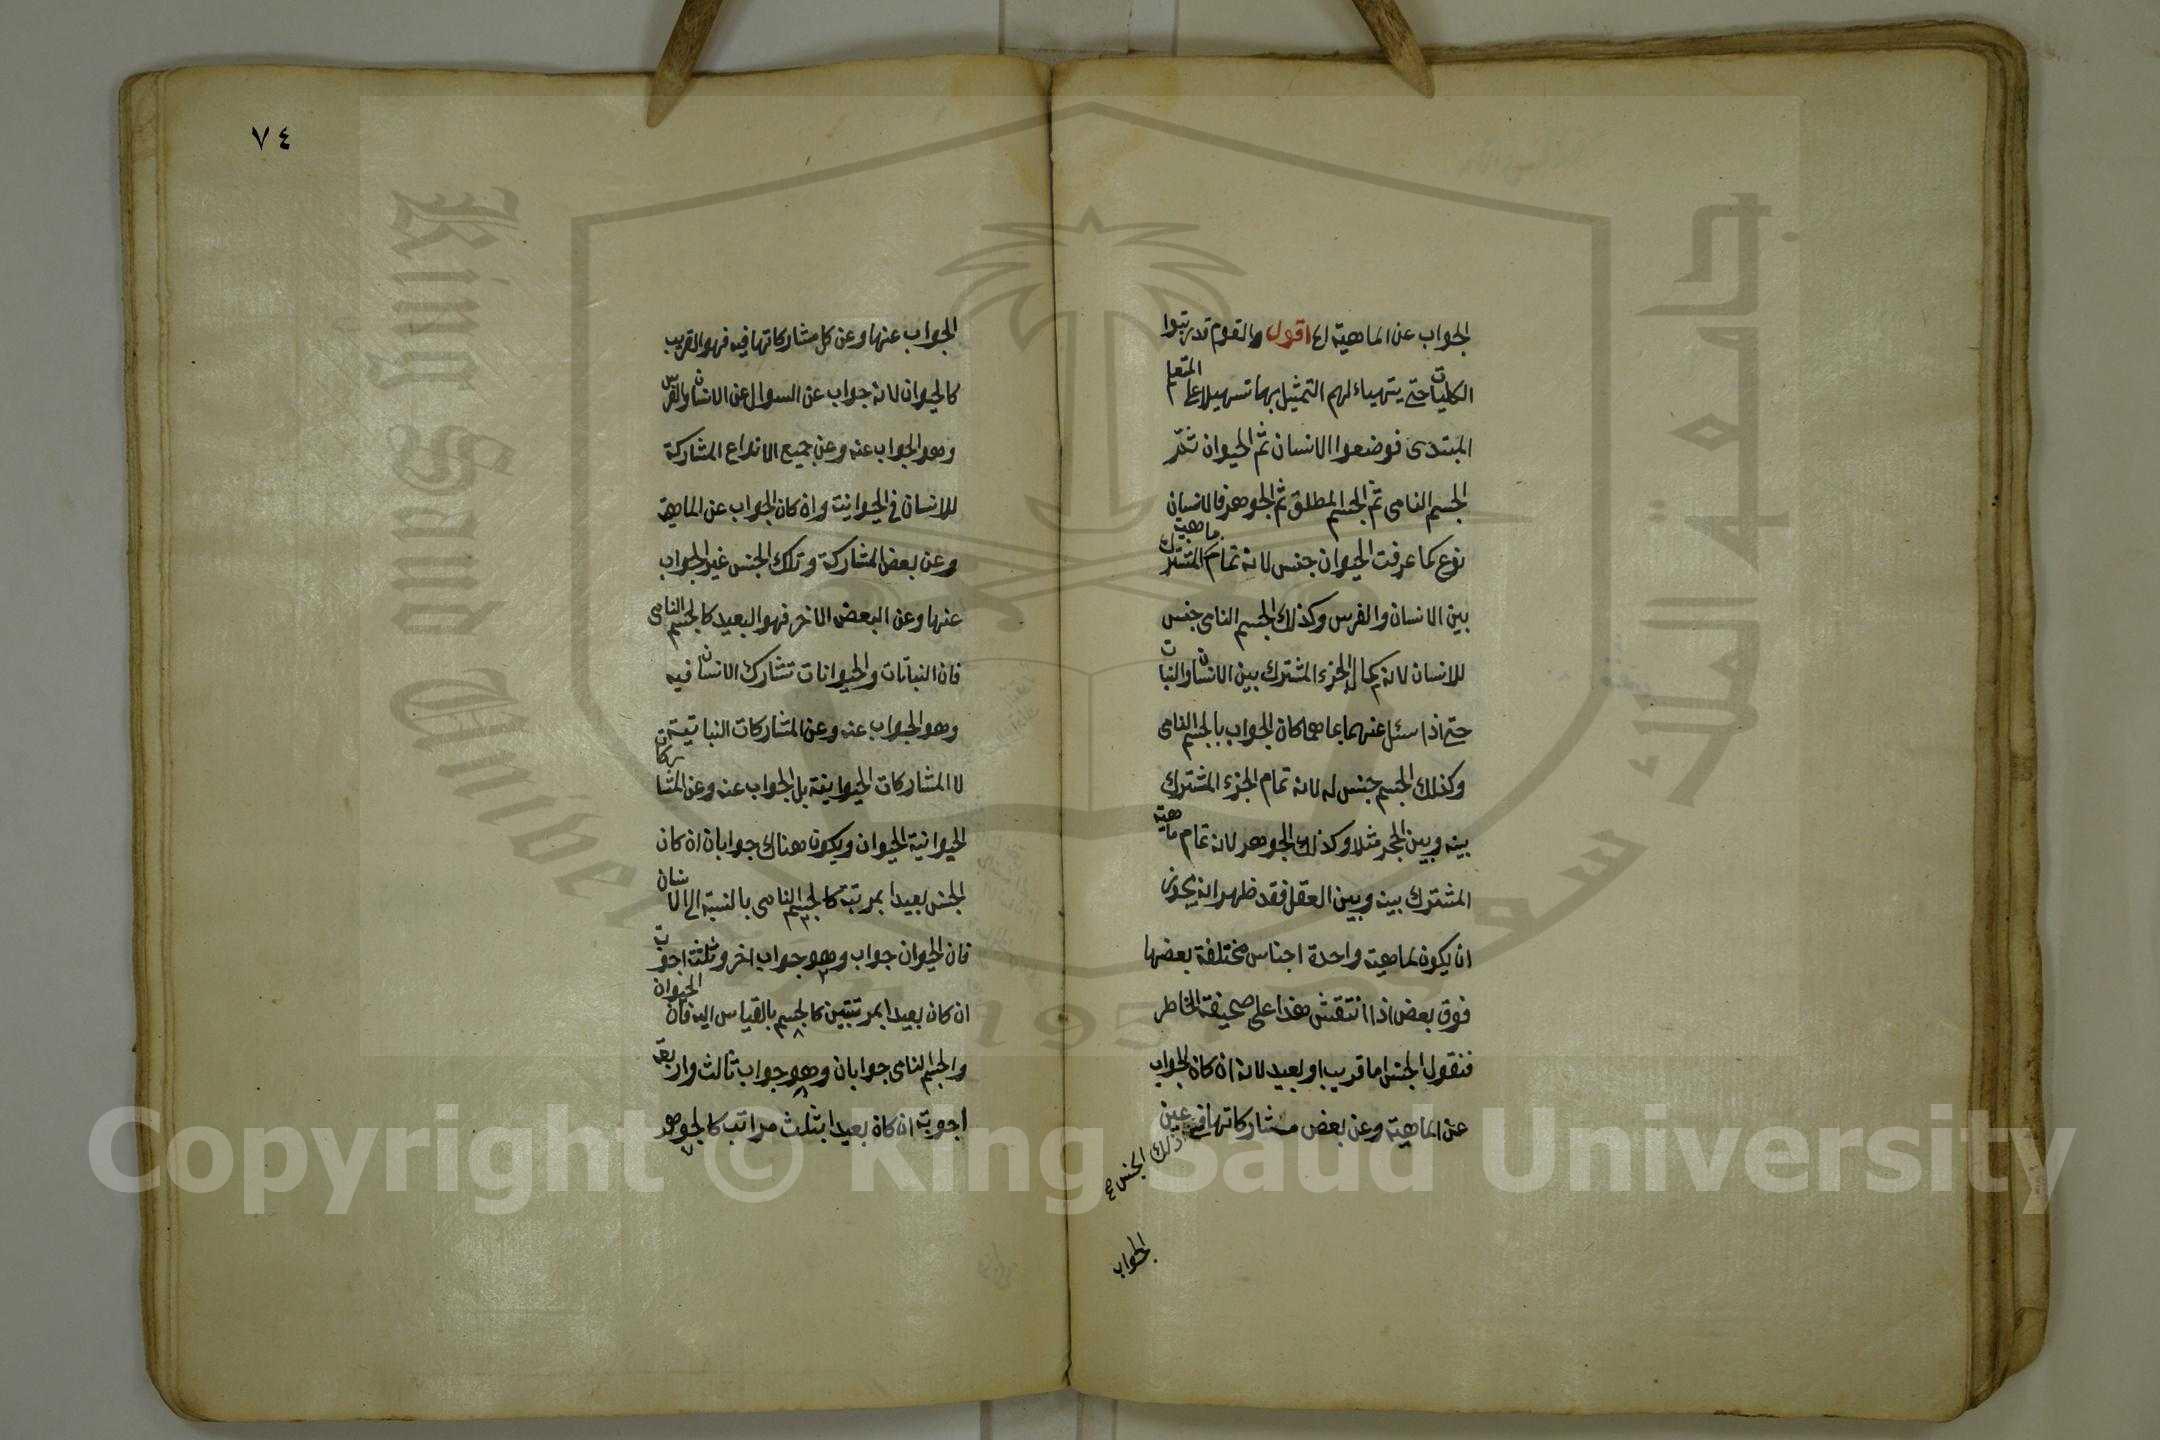 الجواب عن الماهية الخ اقول والقوم قد رتبوا
الكليات حتى يتهياء لهم التمثيل بها تسهيلا على المتعلم
المبتدى فوضعوا الانسان ثم الحيوان ثم
الجسم النامى ثم الجسم المطلق ثم الجوهر فالانسان
نوع كما عرفت الحيوان جنس لانه تمام ماهية المشترك
بين الانسان والفرس وكذلك الجسم النامى جنس
للانسان لانه كمال الجزء المشترك بين الانسان والنبات
حتى اذا سئل عنهما بما هما كان الجواب بالجسم النامى
وكذلك الجسم جنس له لانه تمام الجزء المشترك
بينه وبين الحجر مثلا وكذلك الجوهر لانه تمام ماهية
المشترك بينه وبين العقل فقد ظهر انه يجوز
ان يكون لماهية واحدة اجناس مختلفة بعضها
فوق بعض اذا انتقش هذا على صحيفة الخاطر
فنقول الجنس اما قريب او بعيد لانه ان كان الجواب
عن الماهية وعن بعض مشاركاتها فى عين
ذلك الجنس
الجواب
٧٤
الجواب عنها وعن كل مشاركاتها فيه فهو القريب
كالحيوان لانه جواب عن السوال عن الانسان والفرس
وهو الجواب عنه وعن جميع الانواع المشاركة
للانسان فى الحيوانيت وان كان الجواب عن الماهية
وعن بعض المشاركة وتلك الجنس غير الجواب
عنها وعن البعض الاخر فهو البعيد كالجسم النامى
فان النباتات والحيوانات تشارك الانسان فيه
وهو الجواب عنه وعن المشاركات النباتية
لا المشاركات الحيوانية بل الجواب عنه وعن المشاركات
الحيوانية الحيوان ويكون هناك جوابان ان كان
الجنس بعيدا بمرتبة كالجسم النامى بالنسبة الى الانسان
فان الحيوان جواب وهو جواب اخر وثلثة اجوبة
ان كان بعيدا بمرتبتين كالجسم بالقياس اليه فان الحيوان
والجسم النامى جوابان وهو جواب ثالث واربعة
اجوبة ان كان بعيدا بثلث مراتب كالجوهر